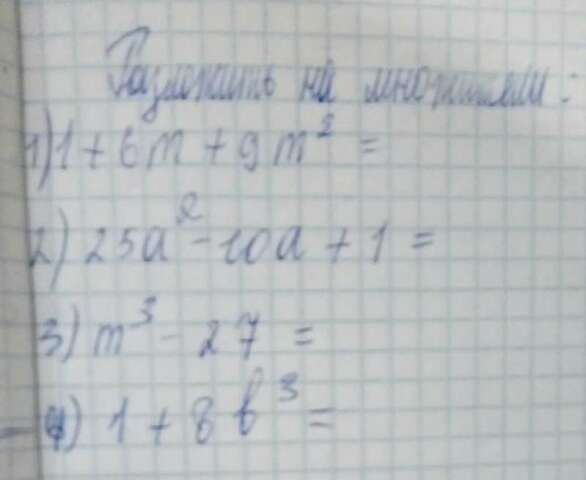 Разложить на множители:
1) 1 + 6m + 9m² =
2) 25a² - 10a + 1 =
3) m³ - 27 =
4) 1 + 8b³ =